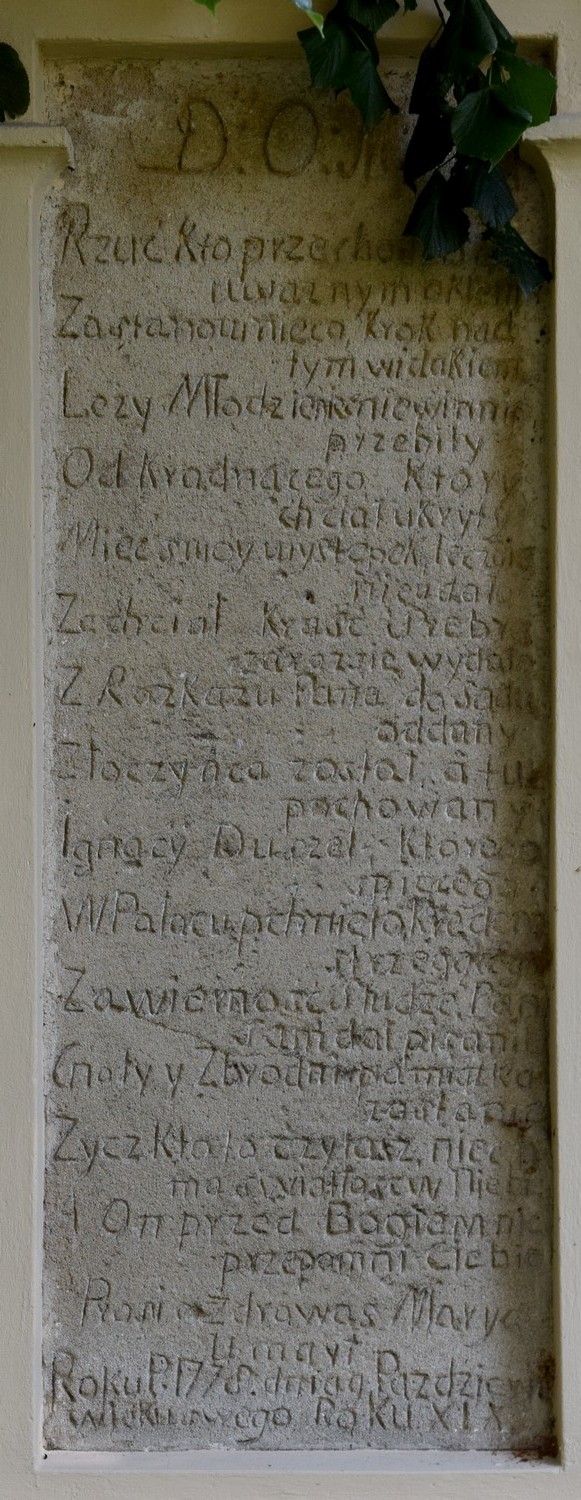 D. O.
Rzuć Kto
uważnym okiem
Zastanow nieco, krok nad
tym widakiem
Leży Młodzieniec niewinnie
przebity
Od kradnącego Ktory
chciał ukryty
Mieć swoy występek, lecz się
nieudało
Zachciał Kraść srebra
zaraz się wydało
Z Rozkazu Pana do Sądu
oddany
Złoczyńca został, a tuż
pochowany
Ignacy Duczel, Ktorego
spiącego
W Pałacu, pchnięto Kradcem
strzegącego
Za wierność Słudze Pan
sam dał pisanie
Cnoty y Zbrodni pamiątka
zostanie
Zycz Kto to czytasz, niech
ma swiatłość w Niebie
I On przed Bogiem nie
przepomni Ciebie
Prosi o Zdrowaś Marya
Umarł
Roku P. 1778. dnia 9 Październ
wieku swego Roku XIX